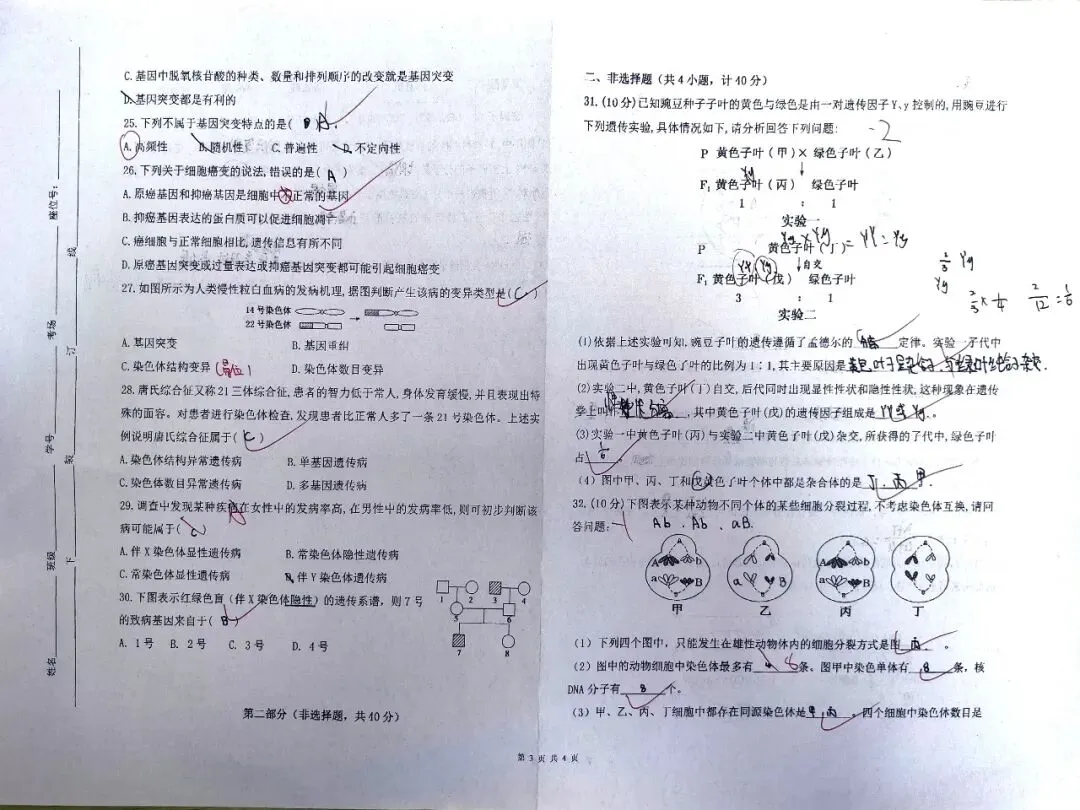 C.基因中脱氧核苷酸的种类、数量和排列顺序的改变就是基因突变
D.基因突变都是有利的
25.下列不属于基因突变特点的是( A )
A.高频性 B.随机性 C.普遍性 D.不定向性
26.下列关于细胞癌变的说法,错误的是( A )
A.原癌基因和抑癌基因是细胞中不正常的基因
B.抑癌基因表达的蛋白质可以促进细胞凋亡
C.癌细胞与正常细胞相比,遗传信息有所不同
D.原癌基因突变或过量表达或抑癌基因突变都可能引起细胞癌变
27.如图所示为人类慢性粒白血病的发病机理,据图判断产生该病的变异类型是( C )
14号染色体
22号染色体
A.基因突变 B.基因重组
C.染色体结构变异(易位) D.染色体数目变异
28.唐氏综合征又称21三体综合征,患者的智力低于常人,身体发育缓慢,并且表现出特
殊的面容。对患者进行染色体检查,发现患者比正常人多了一条21号染色体。上述实
例说明唐氏综合征属于( C )
A.染色体结构异常遗传病 B.单基因遗传病
C.染色体数目异常遗传病 D.多基因遗传病
29.调查中发现某种疾病在女性中的发病率高,在男性中的发病率低,则可初步判断该
病可能属于( ) A
A.伴X染色体显性遗传病 B.常染色体隐性遗传病
C.常染色体显性遗传病 D.伴Y染色体遗传病
30.下图表示红绿色盲(伴X染色体隐性)的遗传系谱,则7号
的致病基因来自于( B )
A.1号 B.2号 C.3号 D.4号
1 2 3 4
5 6
7 8
第二部分(非选择题,共40分)
座位号:
考场
学号
班级
姓名
线
订
装
下
二、非选择题(共4小题,计40分)
31.(10分)已知豌豆种子子叶的黄色与绿色是由一对遗传因子Y、y控制的,用豌豆进行
下列遗传实验,具体情况如下,请分析回答下列问题: -2
P 黄色子叶(甲)×绿色子叶(乙)
Yy
F₁ 黄色子叶(丙) 绿色子叶
1 : 1
实验一
Yy × Yy = YY : Yy
P 黄色子叶(丁)
↓自交
YY Yy
F₁ 黄色子叶(戊) 绿色子叶
3 : 1
实验二
1/3 Yy
Yy
2/3 × 1/4 2/12 = 1/6
(1)依据上述实验可知,豌豆子叶的遗传遵循了孟德尔的 分离 定律。实验一子代中
出现黄色子叶与绿色子叶的比例为1:1,其主要原因是
(2)实验二中,黄色子叶(丁)自交,后代同时出现显性性状和隐性性状,这种现象在遗传
学上叫作 性状分离 ,其中黄色子叶(戊)的遗传因子组成是 YY或Yy 。
(3)实验一中黄色子叶(丙)与实验二中黄色子叶(戊)杂交,所获得的子代中,绿色子叶
占 1/6 。
(4)图中甲、丙、丁和戊黄色子叶个体中都是杂合体的是 丁、丙、甲 .
32.(10分)下图表示某种动物不同个体的某些细胞分裂过程,不考虑染色体互换,请问
答问题: -1 Ab、Ab、aB.
A b
a B
甲
a b
乙
A b
a B
丙
丁
(1)下列四个图中,只能发生在雄性动物体内的细胞分裂方式是图 丙 。
(2)图中的动物细胞中染色体最多有 4 8 条、图甲中染色单体有 8 条,核
DNA分子有 8 个。
(3)甲、乙、丙、丁细胞中都存在同源染色体是 甲,丙 ,四个细胞中染色体数目是
第 3 页 共 4 页